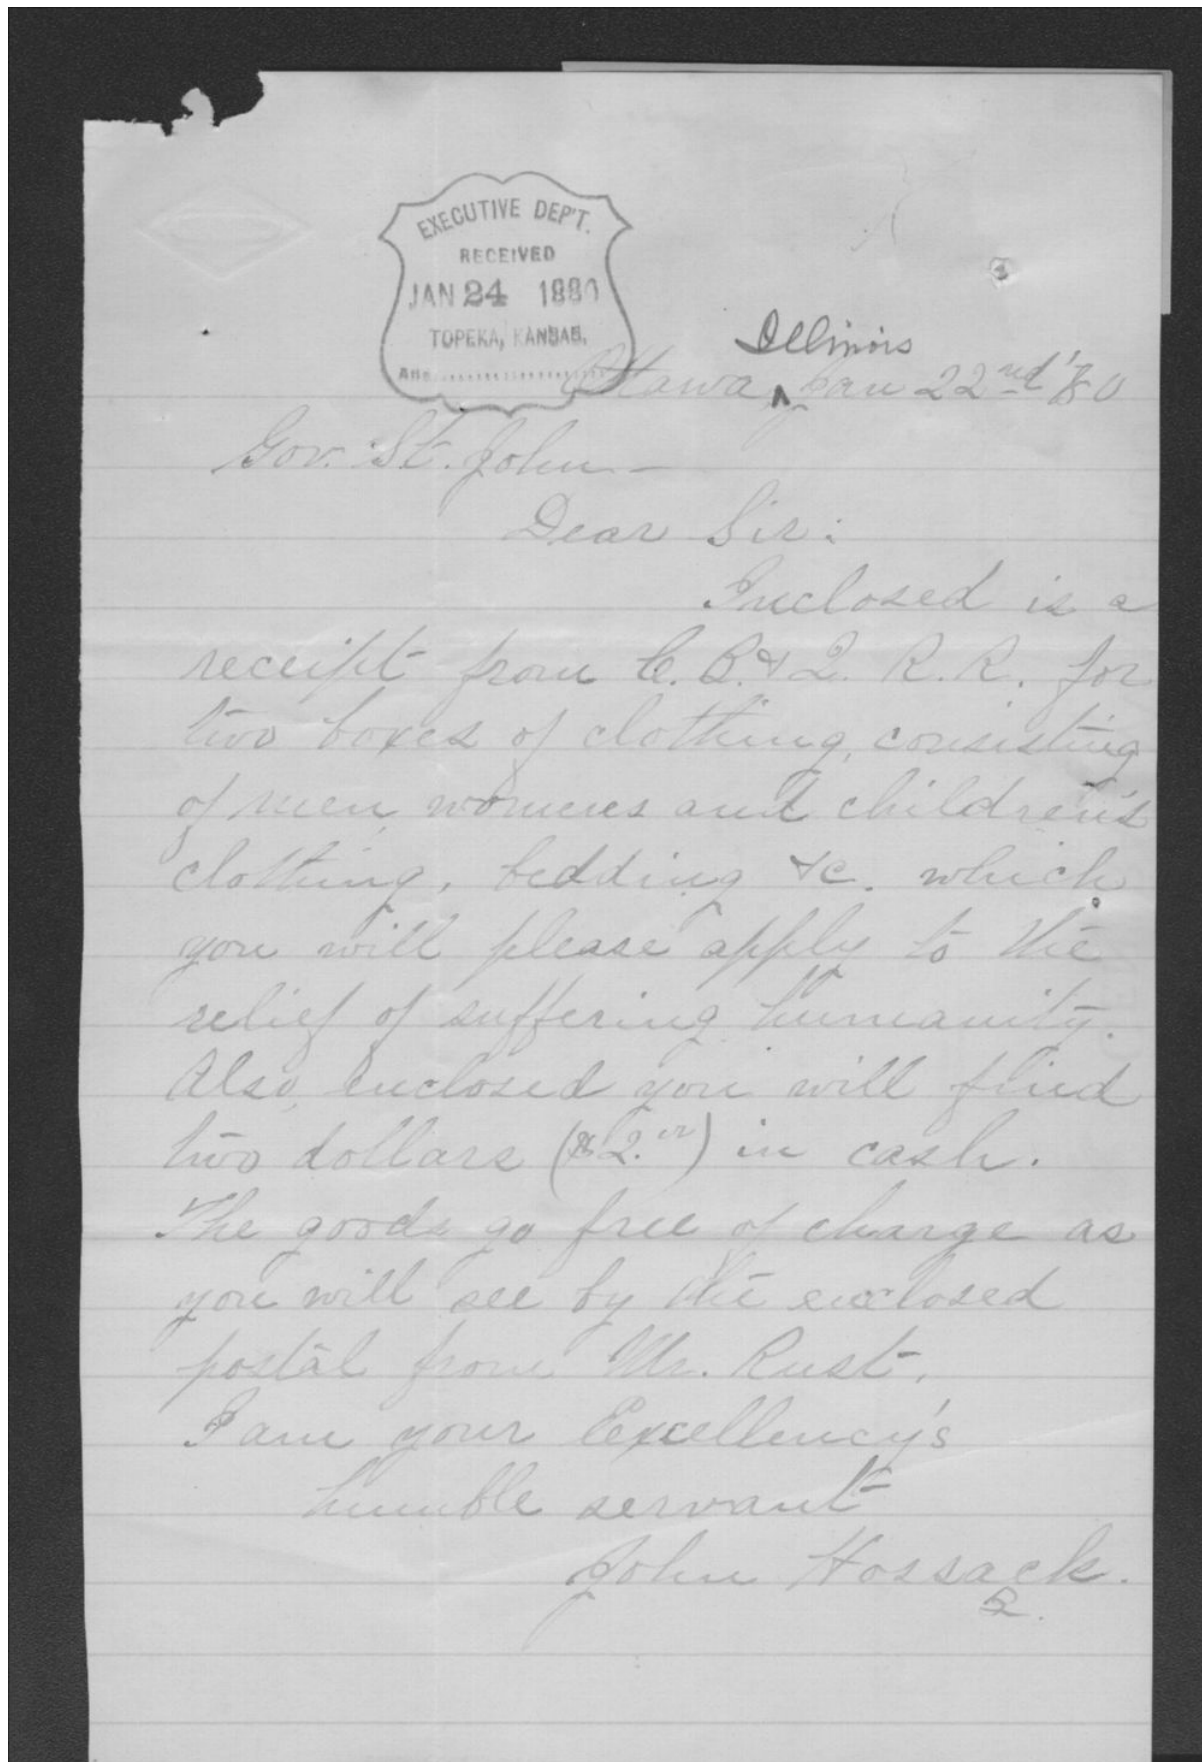 EXECUTIVE DEP'T.
RECEIVED
JAN 24 1880
TOPEKA, KANSAS.
Ans
Illinois
Ottawa ^ Jan 22nd '80
Gov. St. John —
Dear Sir:
Inclosed is a
receipt from C. B. & Q. R. R. for
two boxes of clothing, consisting
of men, womens and children's
clothing, bedding &c. which
you will please apply to the
relief of suffering humanity.
Also, enclosed you will find
two dollars ($2.00) in cash.
The goods go free of charge as
you will see by the enclosed
postal from Mr. Rust.
I am your Excellency's
humble servant
John Hossack.